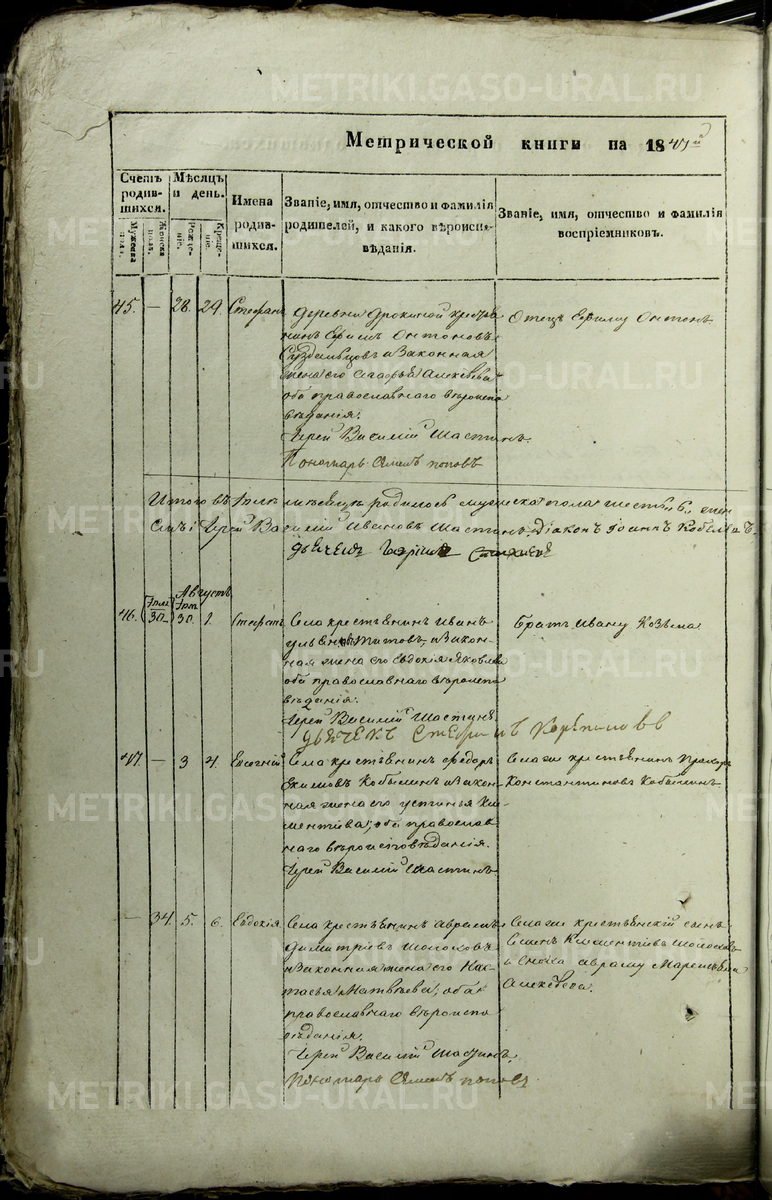 METRIKI.GASO-URAL.RU
Метрической книги на 1841й
Счетъ родив-шихся.
Мужеска пола.
Женска пола.
Мѣсяцъ и день.
Рожде-ніе.
Креще-ніе.
Имена родив-шихся.
Званіе, имя, отчество и фамилія родителей, и какого вѣроиспо-вѣданія.
Званіе, имя, отчество и фамилія воспріемниковъ.
45. — 28. 29. Стефанъ
крестья
нинъ Ефимъ Онтоновъ
Суздальцовъ и Законная
жена его Агафья Алексѣева
оба православнаго вѣроиспо
вѣданія.
Іерей Василій Шастинъ
Пономарь Семенъ Поповъ
Отецъ Ефиму Онтонъ
Итого въ Іюлѣ мѣсяцѣ родилось мужеска пола шесть 6. жен
Іерей Василій Ивановъ Шастинъ. Діаконъ Іоаннъ
Дьячекъ
46. Іюля 30. Августъ 1. Стефанъ
Села крестьянинъ Иванъ
Титовъ, и Закон-
ная жена его Евдокія Яковлева
оба православнаго вѣроиспо
вѣданія.
Іерей Василій Шастинъ
Дьячекъ Стефанъ
Братъ Ивану Козьма
47. — 3 4. Евгеній
Села крестьянинъ Федоръ
Екимовъ Кобылинъ и Закон
ная жена его Устинья Кли-
ментіева, оба православ-
наго вѣроисповѣданія.
Іерей Василій Шастинъ
Села же крестьянинъ Прохоръ
Константиновъ Кобылинъ
— 34. 5. 6. Евдокія
Села крестьянинъ Аврамъ
Димитріевъ Шолоховъ
и Законная жена его Нас-
тасья Матвѣева, оба
православнаго вѣроиспо
вѣданія.
Іерей Василій Шастинъ.
Пономарь Семенъ Поповъ
Села же крестьянскій сынъ
Семенъ Климентіевъ Шолоховъ
и сноха Авраму
Алексѣева.